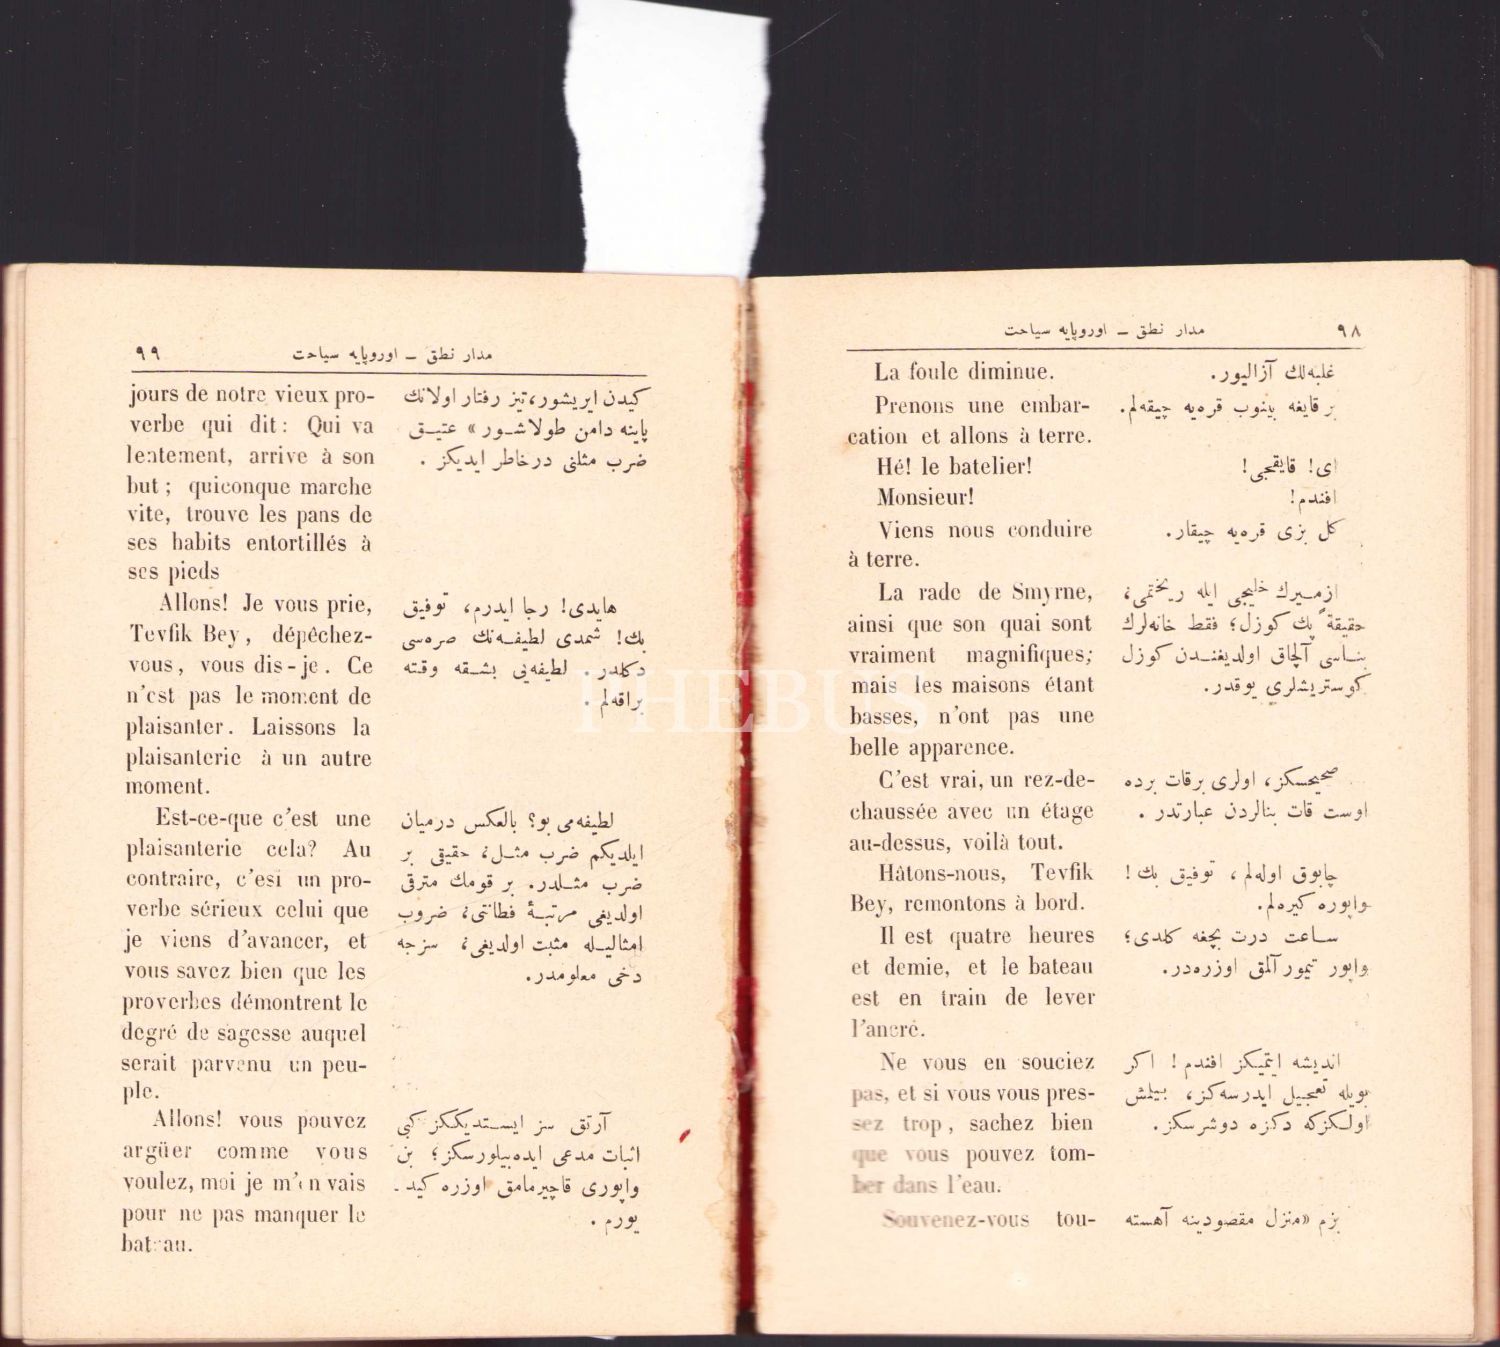 ٩٨ مدار نطق ـ اوروپایه سیاحت
La foule diminue.
Prenons une embar-
cation et allons à terre.
Hé! le batelier!
Monsieur!
Viens nous conduire
à terre.
La rade de Smyrne,
ainsi que son quai sont
vraiment magnifiques;
mais les maisons étant
basses, n'ont pas une
belle apparence.
C'est vrai, un rez-de-
chaussée avec un étage
au-dessus, voilà tout.
Hâtons-nous, Tevfik
Bey, remontons à bord.
Il est quatre heures
et demie, et le bateau
est en train de lever
l'ancré.
Ne vous en souciez
pas, et si vous vous pres-
sez trop, sachez bien
que vous pouvez tom-
ber dans l'eau.
Souvenez-vous tou-
غلبه‌لك آزالیور.
بر قایغه بینوب قره‌یه چیقه‌لم.
ای! قایقجی!
افندم!
كل بزی قره‌یه چیقار.
ازمیرك خلیجی ایله ریختمی،
حقیقةً پك كوزل؛ فقط خانه‌لرك
بناسی آلچاق اولدیغندن كوزل
كوستریشلری یوقدر.
صحیحسكز، اولری برقات برده
اوست قات بنالردن عبارتدر.
چابوق اوله‌لم، توفیق بك!
واپوره كیره‌لم.
ساعت درت بچغه كلدی؛
واپور تیمور آلمق اوزره‌در.
اندیشه ایتمیكز افندم! اكر
بویله تعجیل ایدرسه‌كز، بیلمش
اولكزكه دكزه دوشرسكز.
بزم «منزل مقصودینه آهسته
٩٩ مدار نطق ـ اوروپایه سیاحت
jours de notre vieux pro-
verbe qui dit: Qui va
lentement, arrive à son
but; quiconque marche
vite, trouve les pans de
ses habits entortillés à
ses pieds
Allons! Je vous prie,
Tevfik Bey, dépêchez-
vous, vous dis-je. Ce
n'est pas le moment de
plaisanter. Laissons la
plaisanterie à un autre
moment.
Est-ce-que c'est une
plaisanterie cela? Au
contraire, c'esi un pro-
verbe sérieux celui que
je viens d'avancer, et
vous savez bien que les
proverbes démontrent le
degré de sagesse auquel
serait parvenu un peu-
ple.
Allons! vous pouvez
argüer comme vous
voulez, moi je m'en vais
pour ne pas manquer le
bateau.
كیدن ایریشور، تیز رفتار اولانك
پاینه دامن طولاشور» عتیق
ضرب مثلنی درخاطر ایدیكز.
هایدی! رجا ایدرم، توفیق
بك! شمدی لطیفه‌نك صره‌سی
دكلدر. لطیفه‌یی بشقه وقته
براقه‌لم.
لطیفه‌می بو؟ بالعكس درمیان
ایلدیكم ضرب مثل، حقیقی بر
ضرب مثلدر. بر قومك مترقی
اولدیغی مرتبهٔ فطانتی، ضروب
امثالیله مثبت اولدیغی، سزجه
دخی معلومدر.
آرتق سز ایستدیككز كبی
اثبات مدعی ایده‌بیلورسكز؛ بن
واپوری قاچیرمامق اوزره كید-
یورم.
PHEBUS